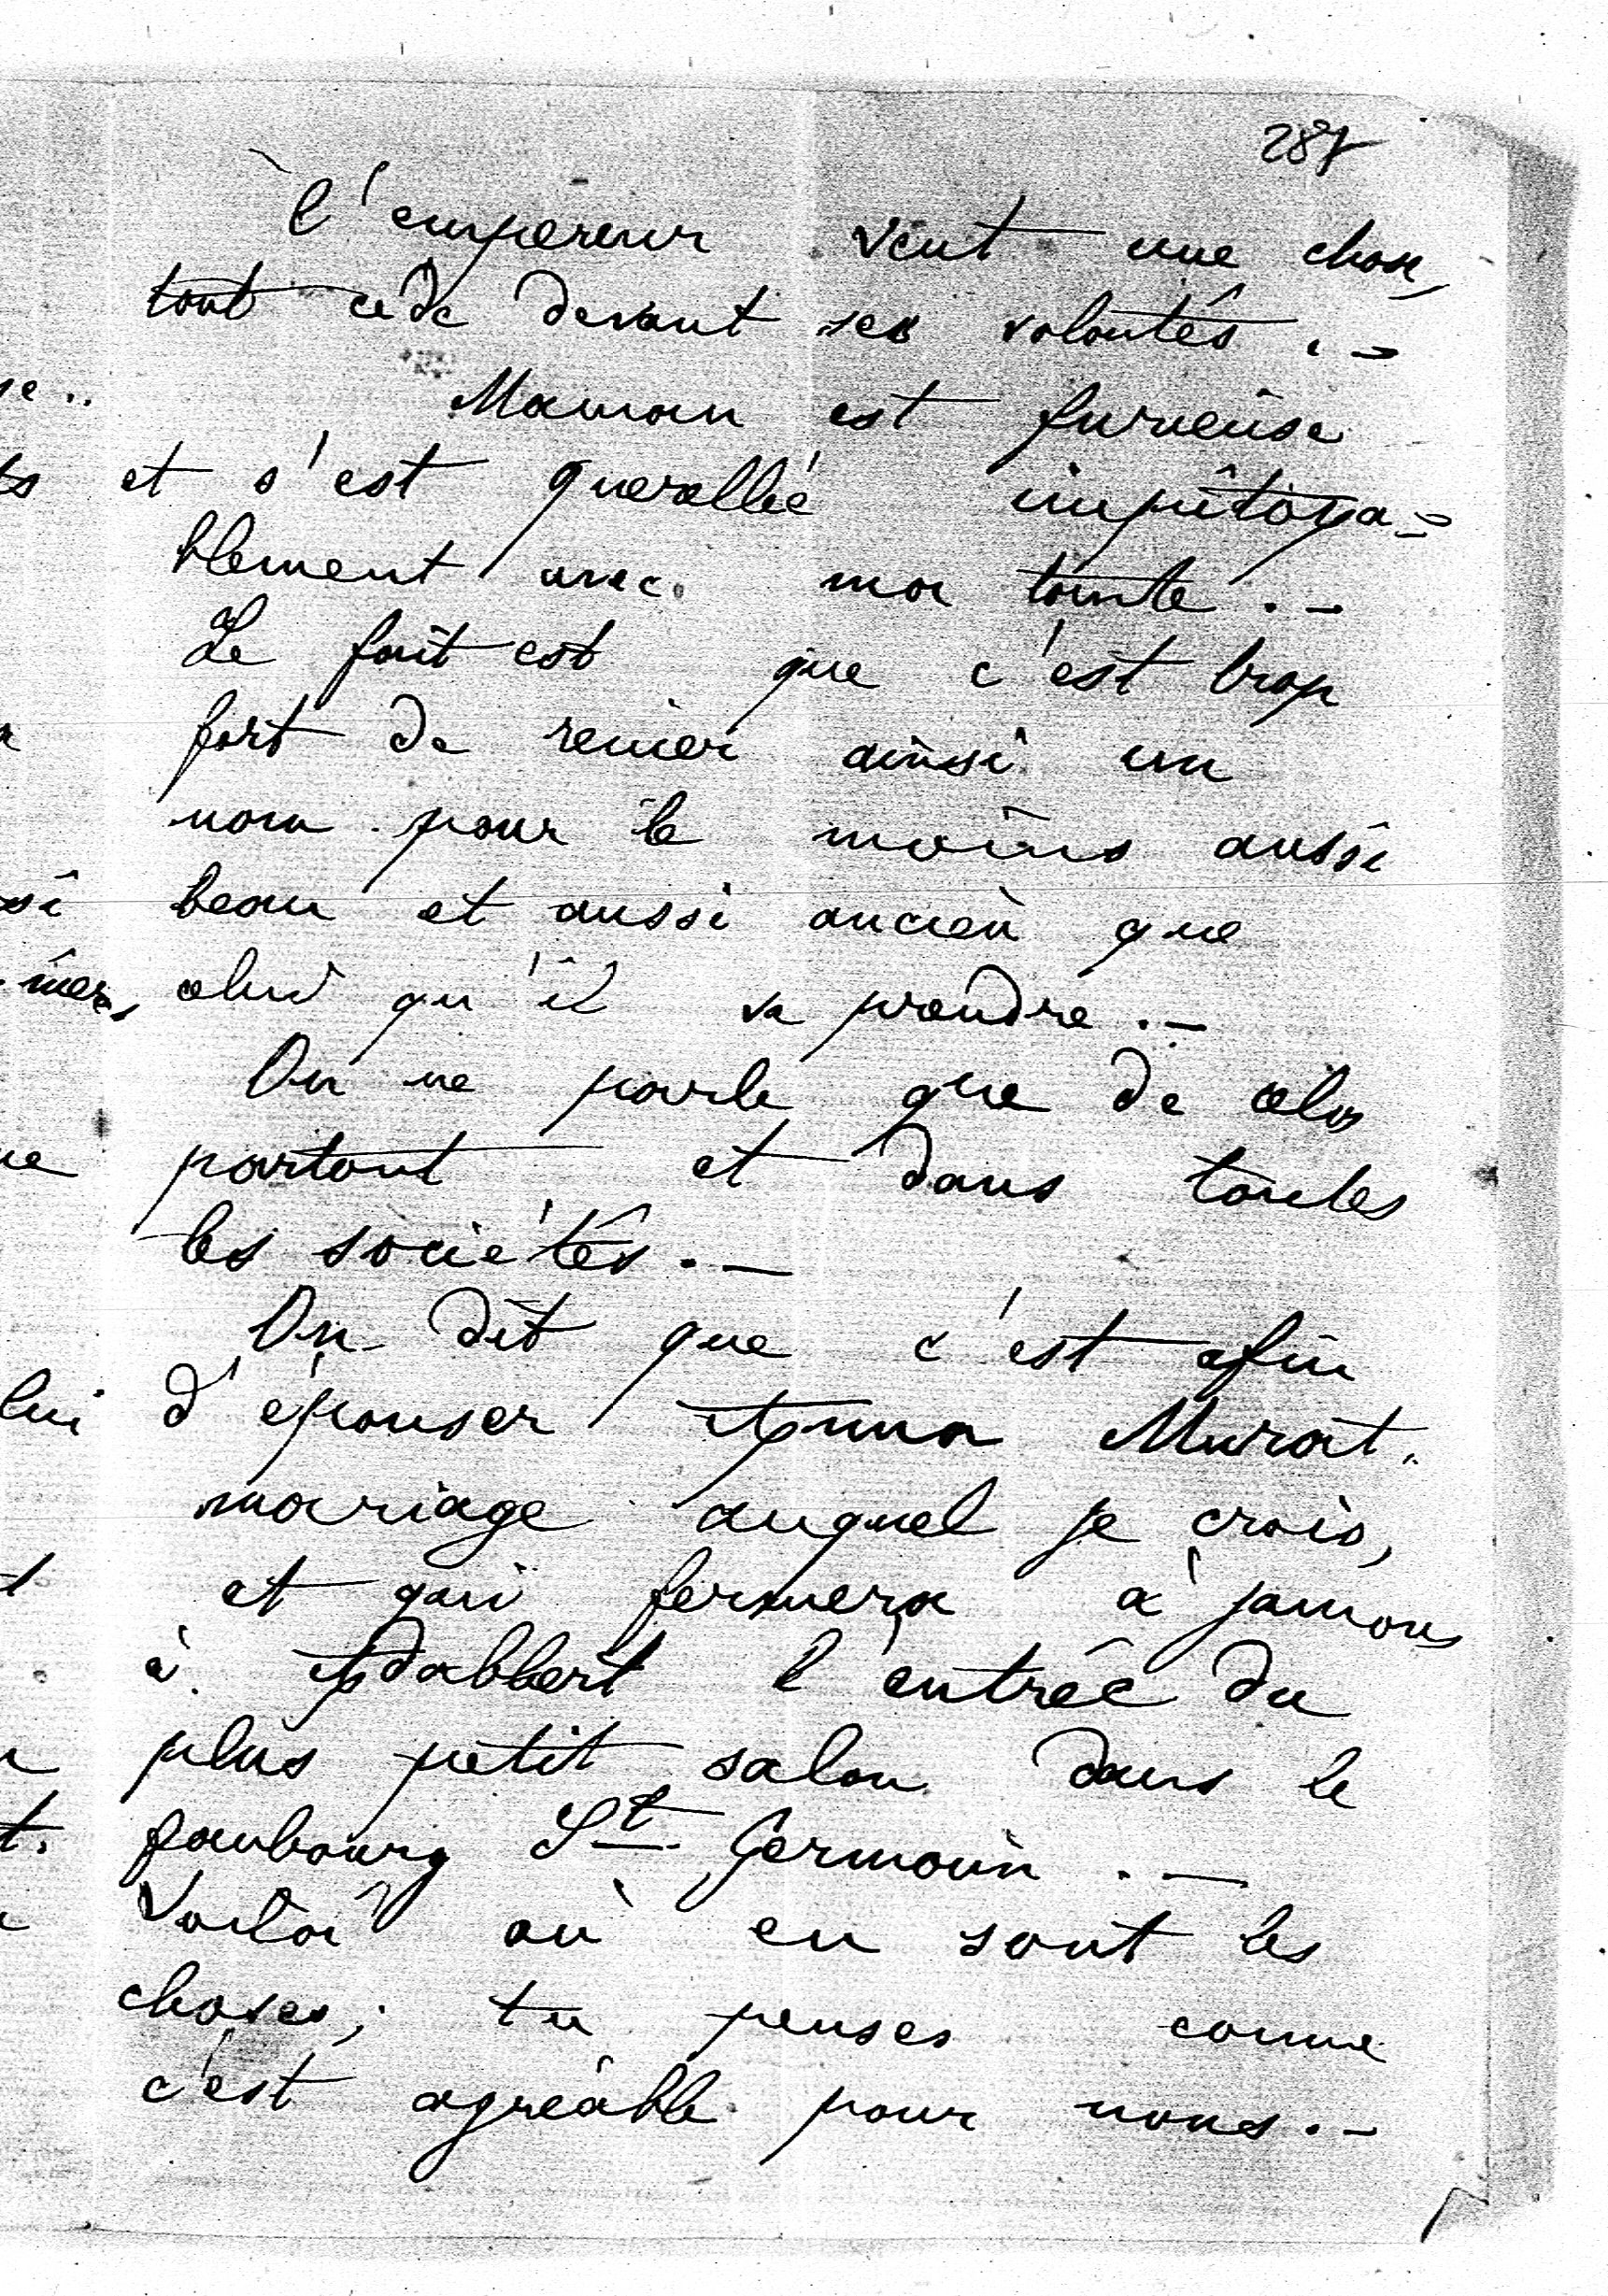 287
l'empereur veut une chose,
tout cède devant ses volontés.-
Maman est furieuse
et s'est querellée impitoya=
blement avec ma tante.-
Le fait est que c'est trop
fort de renier ainsi un
nom pour le moins aussi
beau et aussi ancien que
celui qu'il va prendre.-
On ne parle que de cela
partout et dans toutes
les sociétés.-
On dit que c'est afin
d'épouser Anna Murat.
mariage auquel je crois,
et qui fermera à jamais
à Adalbert l'entrée du
plus petit salon dans le
faubourg St. Germain.-
Voilà où en sont les
choses; tu penses comme
c'est agréable pour nous.-